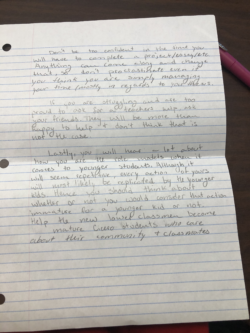 Don't be too confident in the time you
will have to complete a project/complete
Anything can come along and change
that so don't procrastinate even if
you think you are simply managing
your time smartly in regards to your
If you are struggling and are too
proud to ask for a teacher's help ask
your friends. They will be more than
happy to help & don't think that is
not the case.
Lastly, you will hear a lot about
how you are the role models when it
comes to younger students. Although it
will seem repetitive, every action of yours
will most likely be replicated by the younger
kids. Hence you should think about
whether or not you would consider that action
immature for a younger kid or not.
Help the new lower classmen become
mature students who care
about their community & classmates